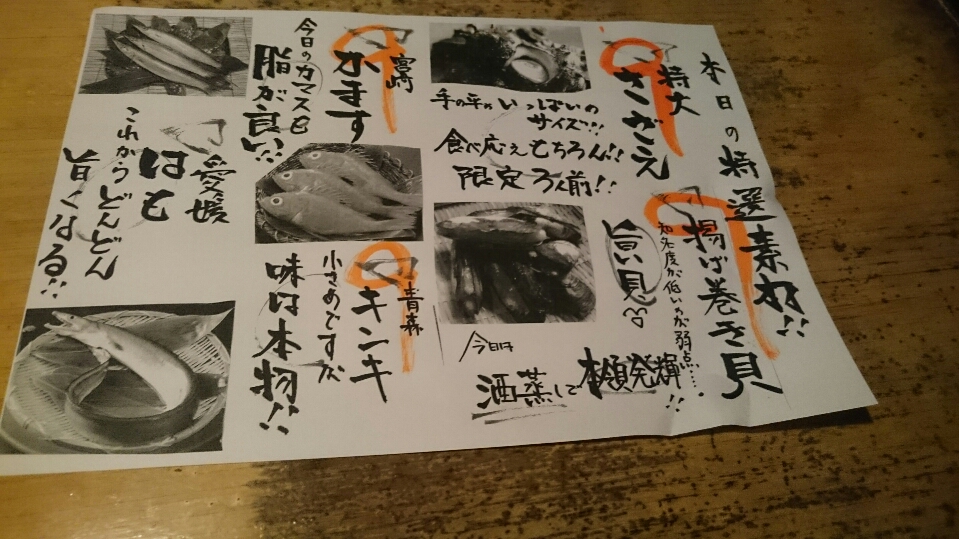 本日の特選素材!!
特大
さざえ
手の平いっぱいの
サイズ!!
食べ応えもちろん!!
限定3人前!!
揚げ巻き貝
知名度が低いのが弱点……
旨い貝
今日は
酒蒸しで
本領発揮!!
宮崎
かます
今日のカマスも
脂が良い!!
青森
キンキ
小さめですが
味は本物!!
愛媛
はも
これからどんどん
旨くなる!!